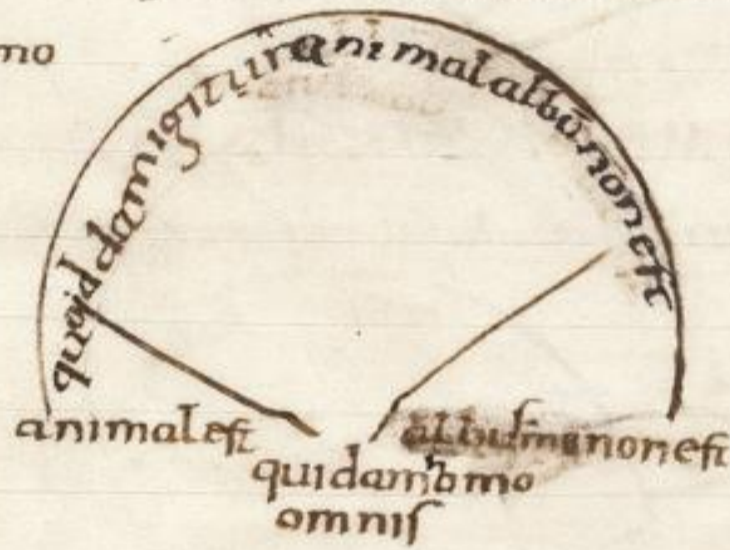 mo
quiddam igitur animal albū non est
animal est
albus non est
quidam homo
omnis